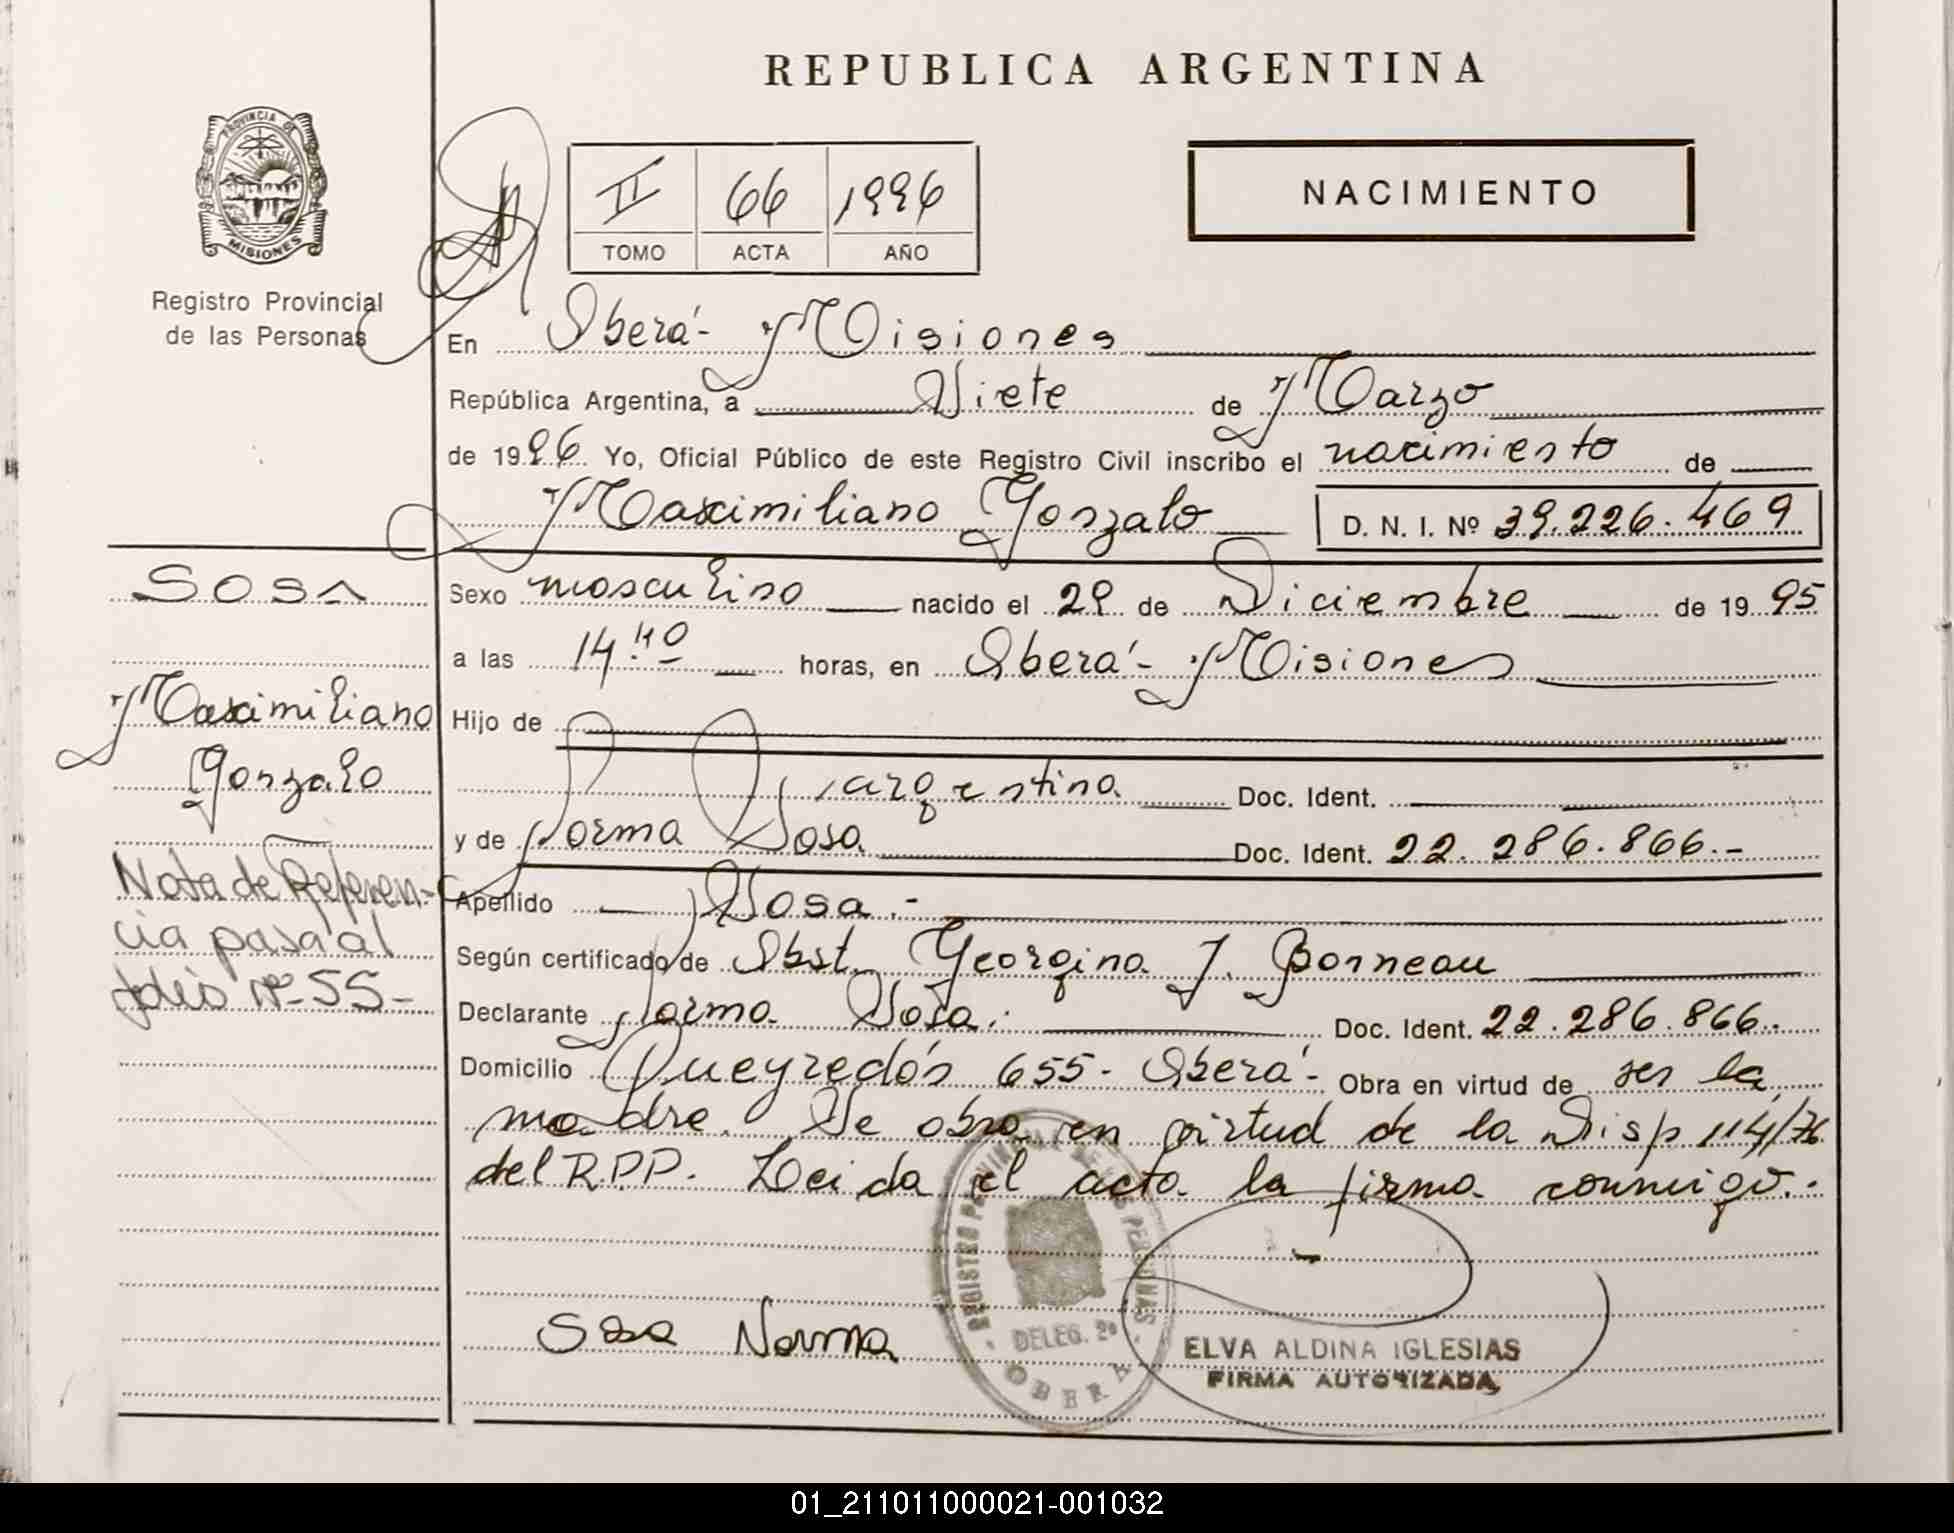 REPUBLICA ARGENTINA
PROVINCIA DE
MISIONES
Registro Provincial
de las Personas
II 66 1996
TOMO ACTA AÑO
NACIMIENTO
En Oberá - Misiones
República Argentina, a Siete de Marzo
de 1996 Yo, Oficial Público de este Registro Civil inscribo el nacimiento de
Maximiliano Gonzalo D. N. I. Nº 39.226.469
SOSA
Maximiliano
Gonzalo
Nota de Referen-
cia pasa al
folio Nº 55-
Sexo masculino nacido el 29 de Diciembre de 1995
a las 14.40 horas, en Oberá - Misiones
Hijo de
argentina Doc. Ident.
y de Norma Sosa Doc. Ident. 22.286.866.-
Apellido Sosa.-
Según certificado de Obst. Georgina J. Bonneau
Declarante Norma Sosa. Doc. Ident. 22.286.866.
Domicilio Pueyredón 655 - Oberá - Obra en virtud de ser la
madre. Se obra en virtud de la Disp 114/76
del R.P.P. Leida el acta la firma conmigo.-
Sosa Norma
REGISTRO PROVINCIAL DE LAS PERSONAS
DELEG. 2º
OBERA
ELVA ALDINA IGLESIAS
FIRMA AUTORIZADA
01_211011000021-001032